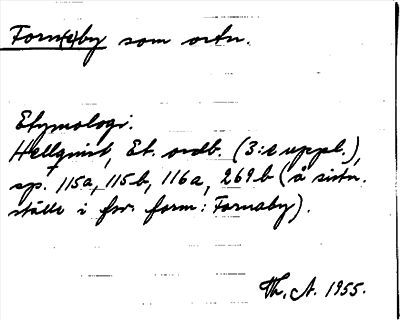 Forn(e)by som ortn.
Etymologi.
Hellquist, Et. ordb. (3:e uppl.),
sp. 115a, 115b, 116a, 269b (å sistn.
ställe i fsv. form: Fornaby).
Th. A. 1955.